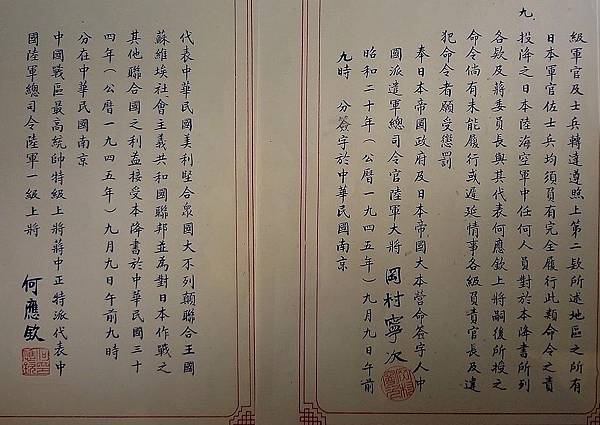 級軍官及士兵轉達遵照上第二欵所述地區之所有
日本軍官佐士兵均須負有完全履行此類命令之責
九、投降之日本陸海空軍中任何人員對於本降書所列
各欵及蔣委員長與其代表何應欽上將嗣後所授之
命令倘有未能履行或遲延情事各級負責官長及違
犯命令者願受懲罰
奉日本帝國政府及日本帝國大本營命簽字人中
國派遣軍總司令官陸軍大將 岡村寧次
昭和二十年(公曆一九四五年)九月九日午前
九時 分簽字於中華民國南京
代表中華民國美利堅合眾國大不列顛聯合王國
蘇維埃社會主義共和國聯邦並為對日本作戰之
其他聯合國之利益接受本降書於中華民國三十
四年(公曆一九四五年)九月九日午前九時
分在中華民國南京
中國戰區最高統帥特級上將蔣中正特派代表中
國陸軍總司令陸軍一級上將 何應欽